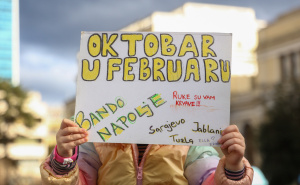 OKTOBAR
U FEBRUARU
BANDO
NAPOLJE
RUKE SU VAM
KRVAVE!!!
Sarajevo Jablanica
Tuzla